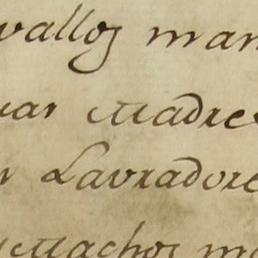 vallos man
uar Madre
r Lavradore
Machos m